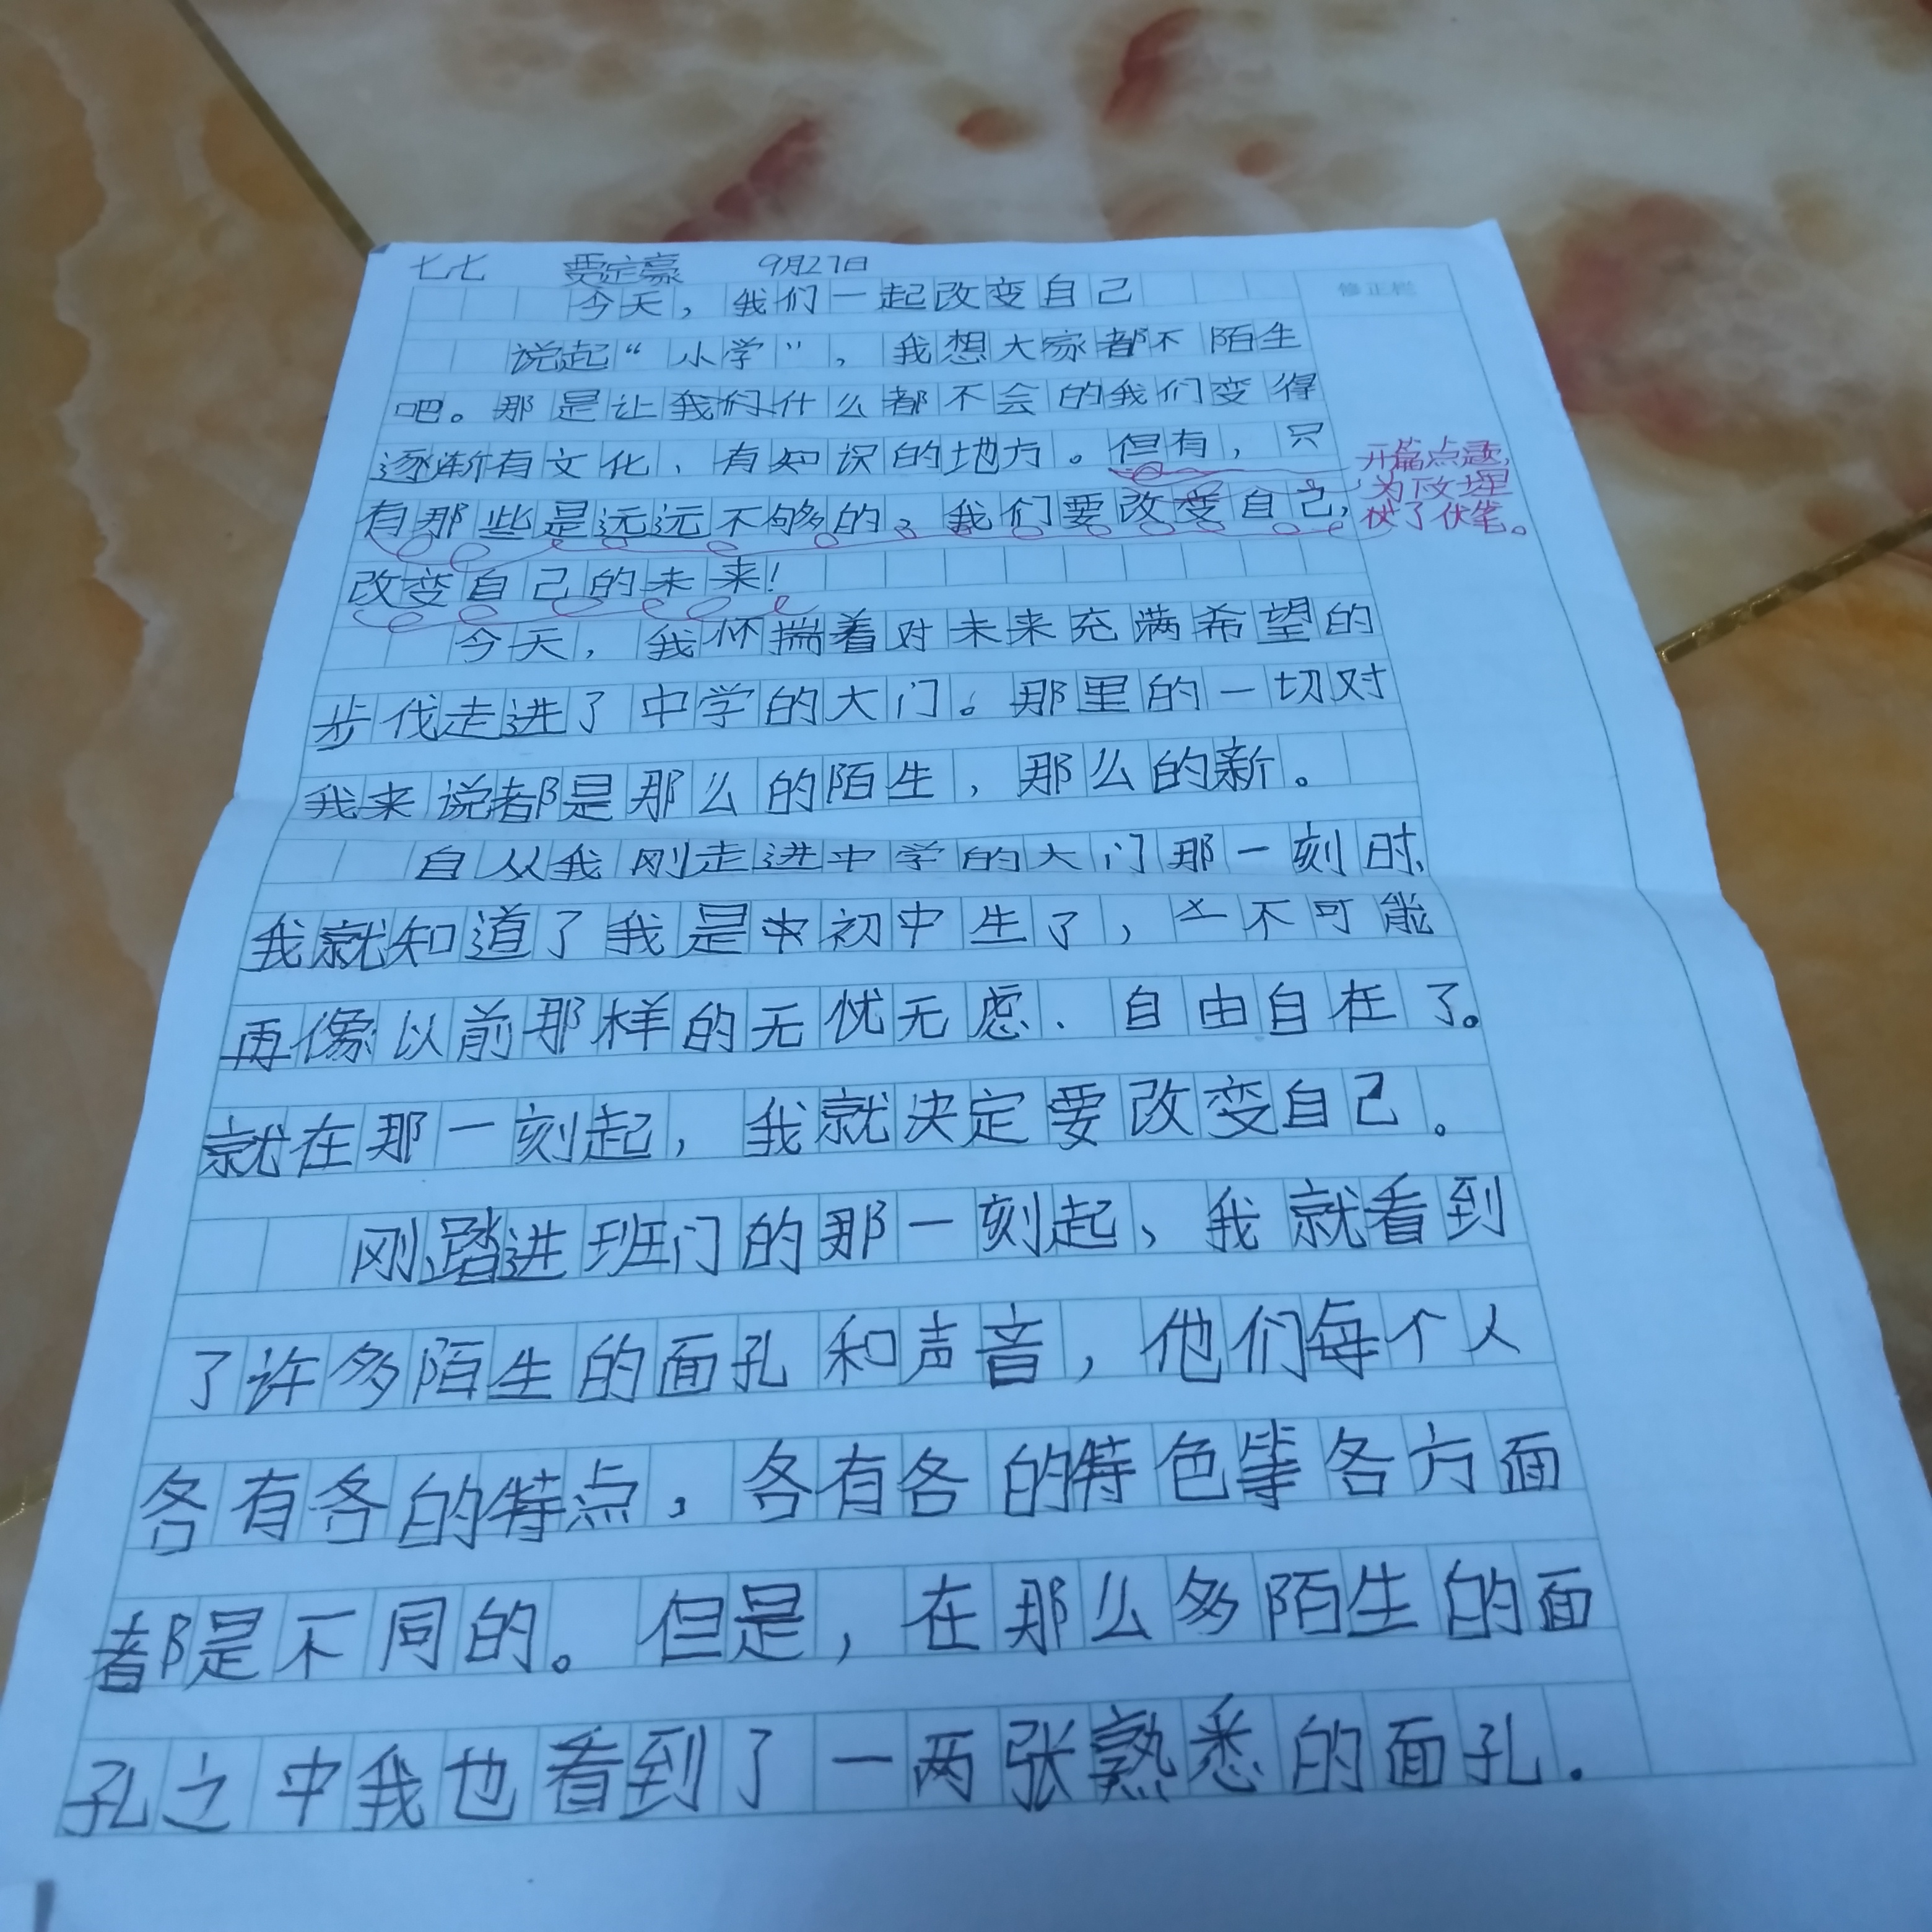 七七 贾定豪 9月27日
修正栏
今天，我们一起改变自己
说起“小学”，我想大家都不陌生
吧。那是让我们什么都不会的我们变得
逐渐有文化、有知识的地方。但有，只
有那些是远远不够的。我们要改变自己，
改变自己的未来！
开篇点题，
为下文埋
伏了伏笔。
今天，我怀揣着对未来充满希望的
步伐走进了中学的大门。那里的一切对
我来说都是那么的陌生，那么的新。
自从我刚走进中学的大门那一刻时，
我就知道了我是初中生了，不可能
再像以前那样的无忧无虑、自由自在了。
就在那一刻起，我就决定要改变自己。
刚踏进班门的那一刻起、我就看到
了许多陌生的面孔和声音，他们每个人
各有各的特点，各有各的特色等各方面
都是不同的。但是，在那么多陌生的面
孔之中我也看到了一两张熟悉的面孔.